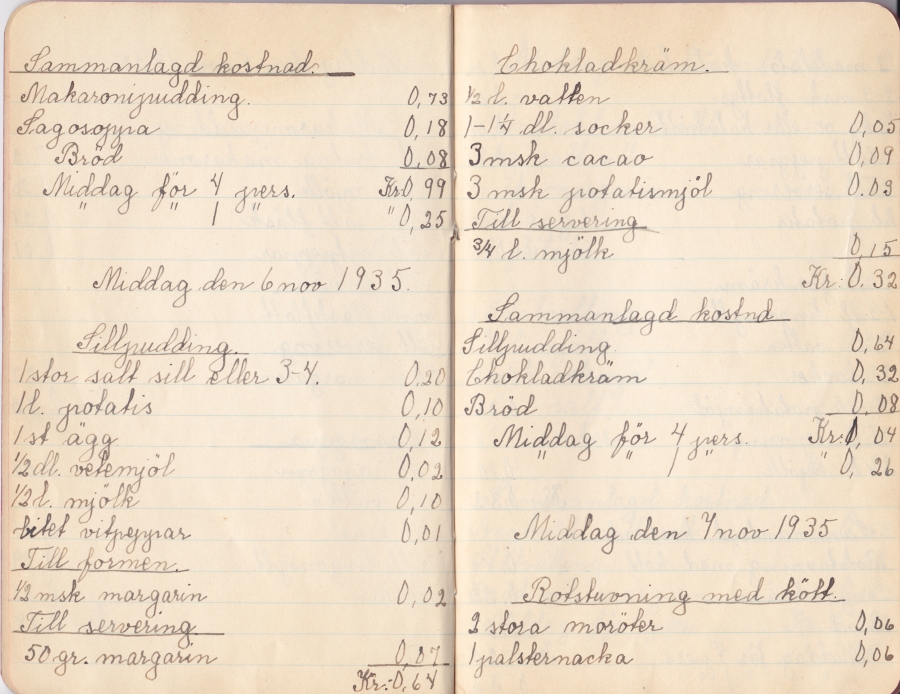 Sammanlagd kostnad.
Makaronipudding. 0,73
Sagosoppa 0,18
Bröd 0,08
Middag för 4 pers. Kr.0,99
" " 1 " 0,25
Middag den 6 nov 1935.
Sillpudding.
1 stor salt sill eller 3-4. 0,20
1 l. potatis 0,10
1 st ägg 0,12
1/2 dl. vetemjöl 0,02
1/2 l. mjölk 0,10
litet vitpeppar 0,01
Till formen.
1/2 msk margarin 0,02
Till servering.
50 gr. margarin 0,07
Kr:-0,64
Chokladkräm.
1/2 l. vatten
1-1 1/4 dl. socker 0,05
3 msk cacao 0,09
3 msk potatismjöl 0.03
Till servering
3/4 l. mjölk 0,15
Kr: 0.32
Sammanlagd kostnd
Sillpudding 0,64
Chokladkräm 0,32
Bröd 0.08
Middag för 4 pers. Kr:1,04
" " 1 " " 0,26
Middag den 7 nov 1935
Rotstuvning med kött.
2 stora moröter 0,06
1 palsternacka 0,06